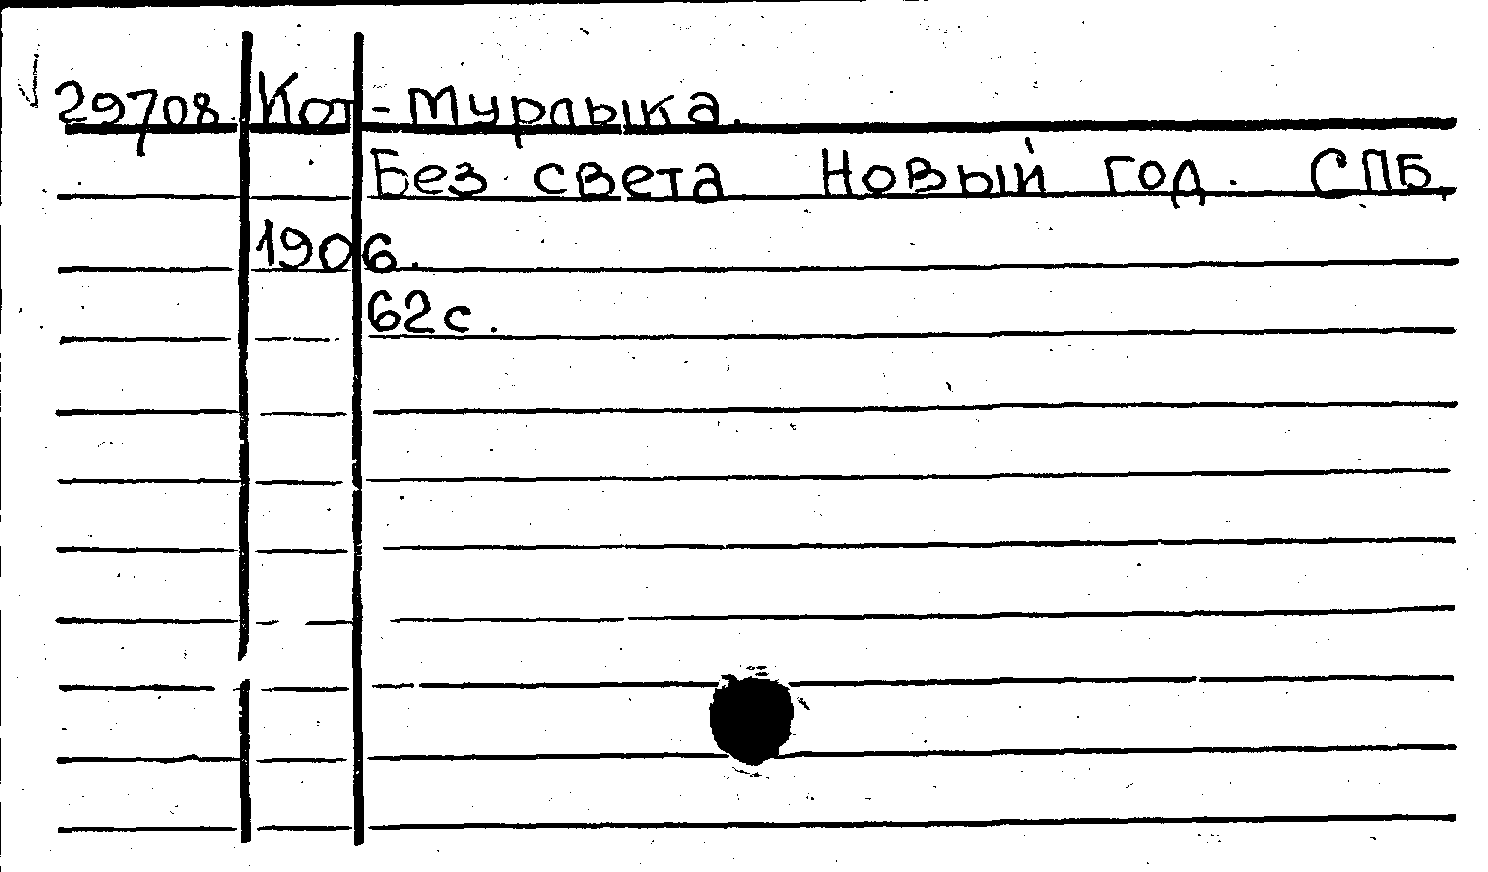 29708 Кот-Мурлыка.
Без света Новый год. СПБ,
1906.
62 с.